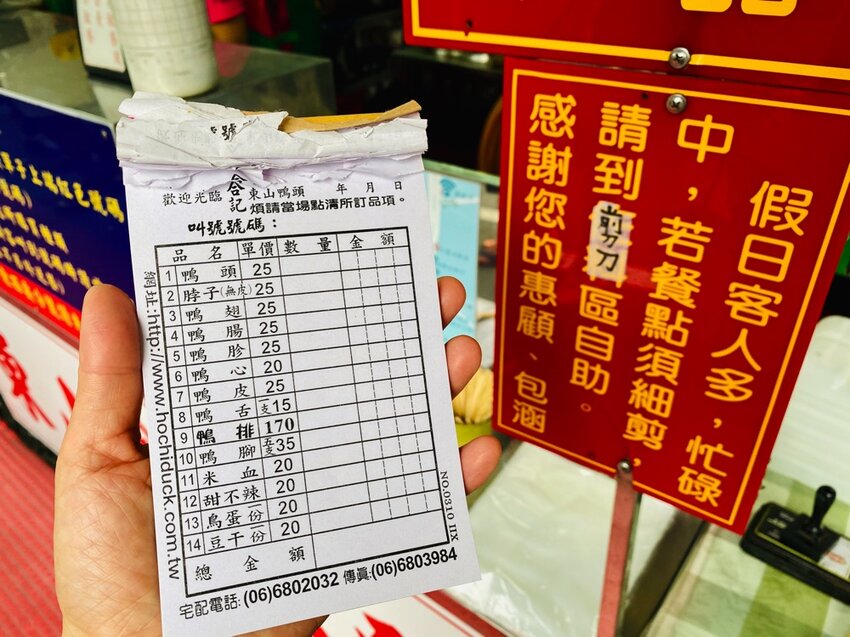 號
歡迎光臨 合記 東山鴨頭 年 月 日
煩請當場點清所訂品項。
叫號號碼：
品 名 單價 數 量 金 額
1 鴨 頭 25
2 脖子(無皮) 25
3 鴨 翅 25
4 鴨 腸 25
5 鴨 胗 25
6 鴨 心 20
7 鴨 皮 25
8 鴨 舌 一支15
9 鴨 排 170
10 鴨 腳 五支35
11 米 血 20
12 甜不辣 20
13 鳥蛋份 20
14 豆干份 20
總 金 額
宅配電話:(06)6802032 傳真:(06)6803984
網址:http://www.hochiduck.com.tw
NO.0310 IIX
假日客人多，忙碌
中，若餐點須細剪，
請到剪刀區自助。
感謝您的惠顧、包涵